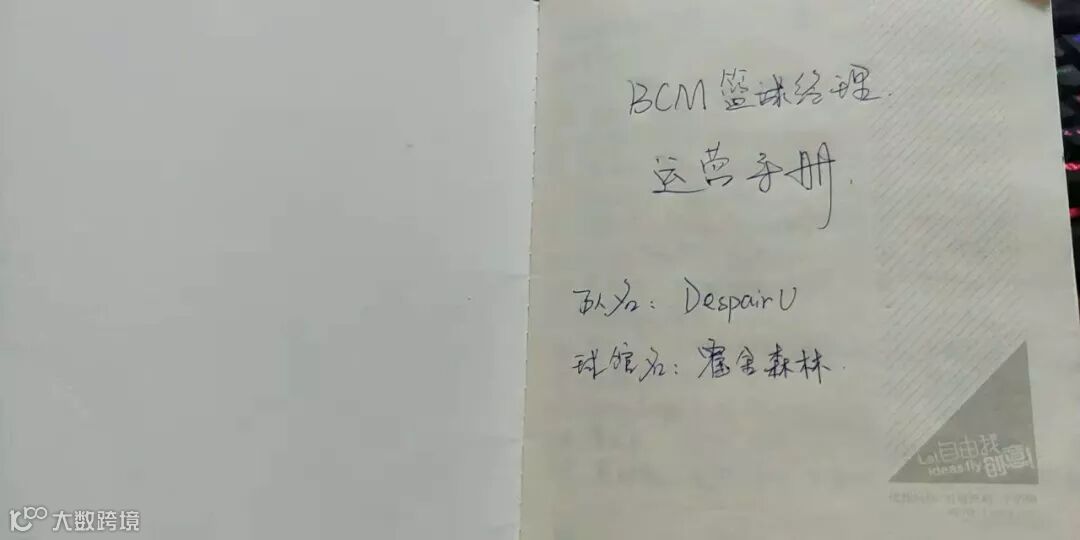 BCM 篮球经理.
运营手册.
队名: DespairU
球馆名: 霍金森林.
Let 自由找
ideas fly 创意!
大数跨境